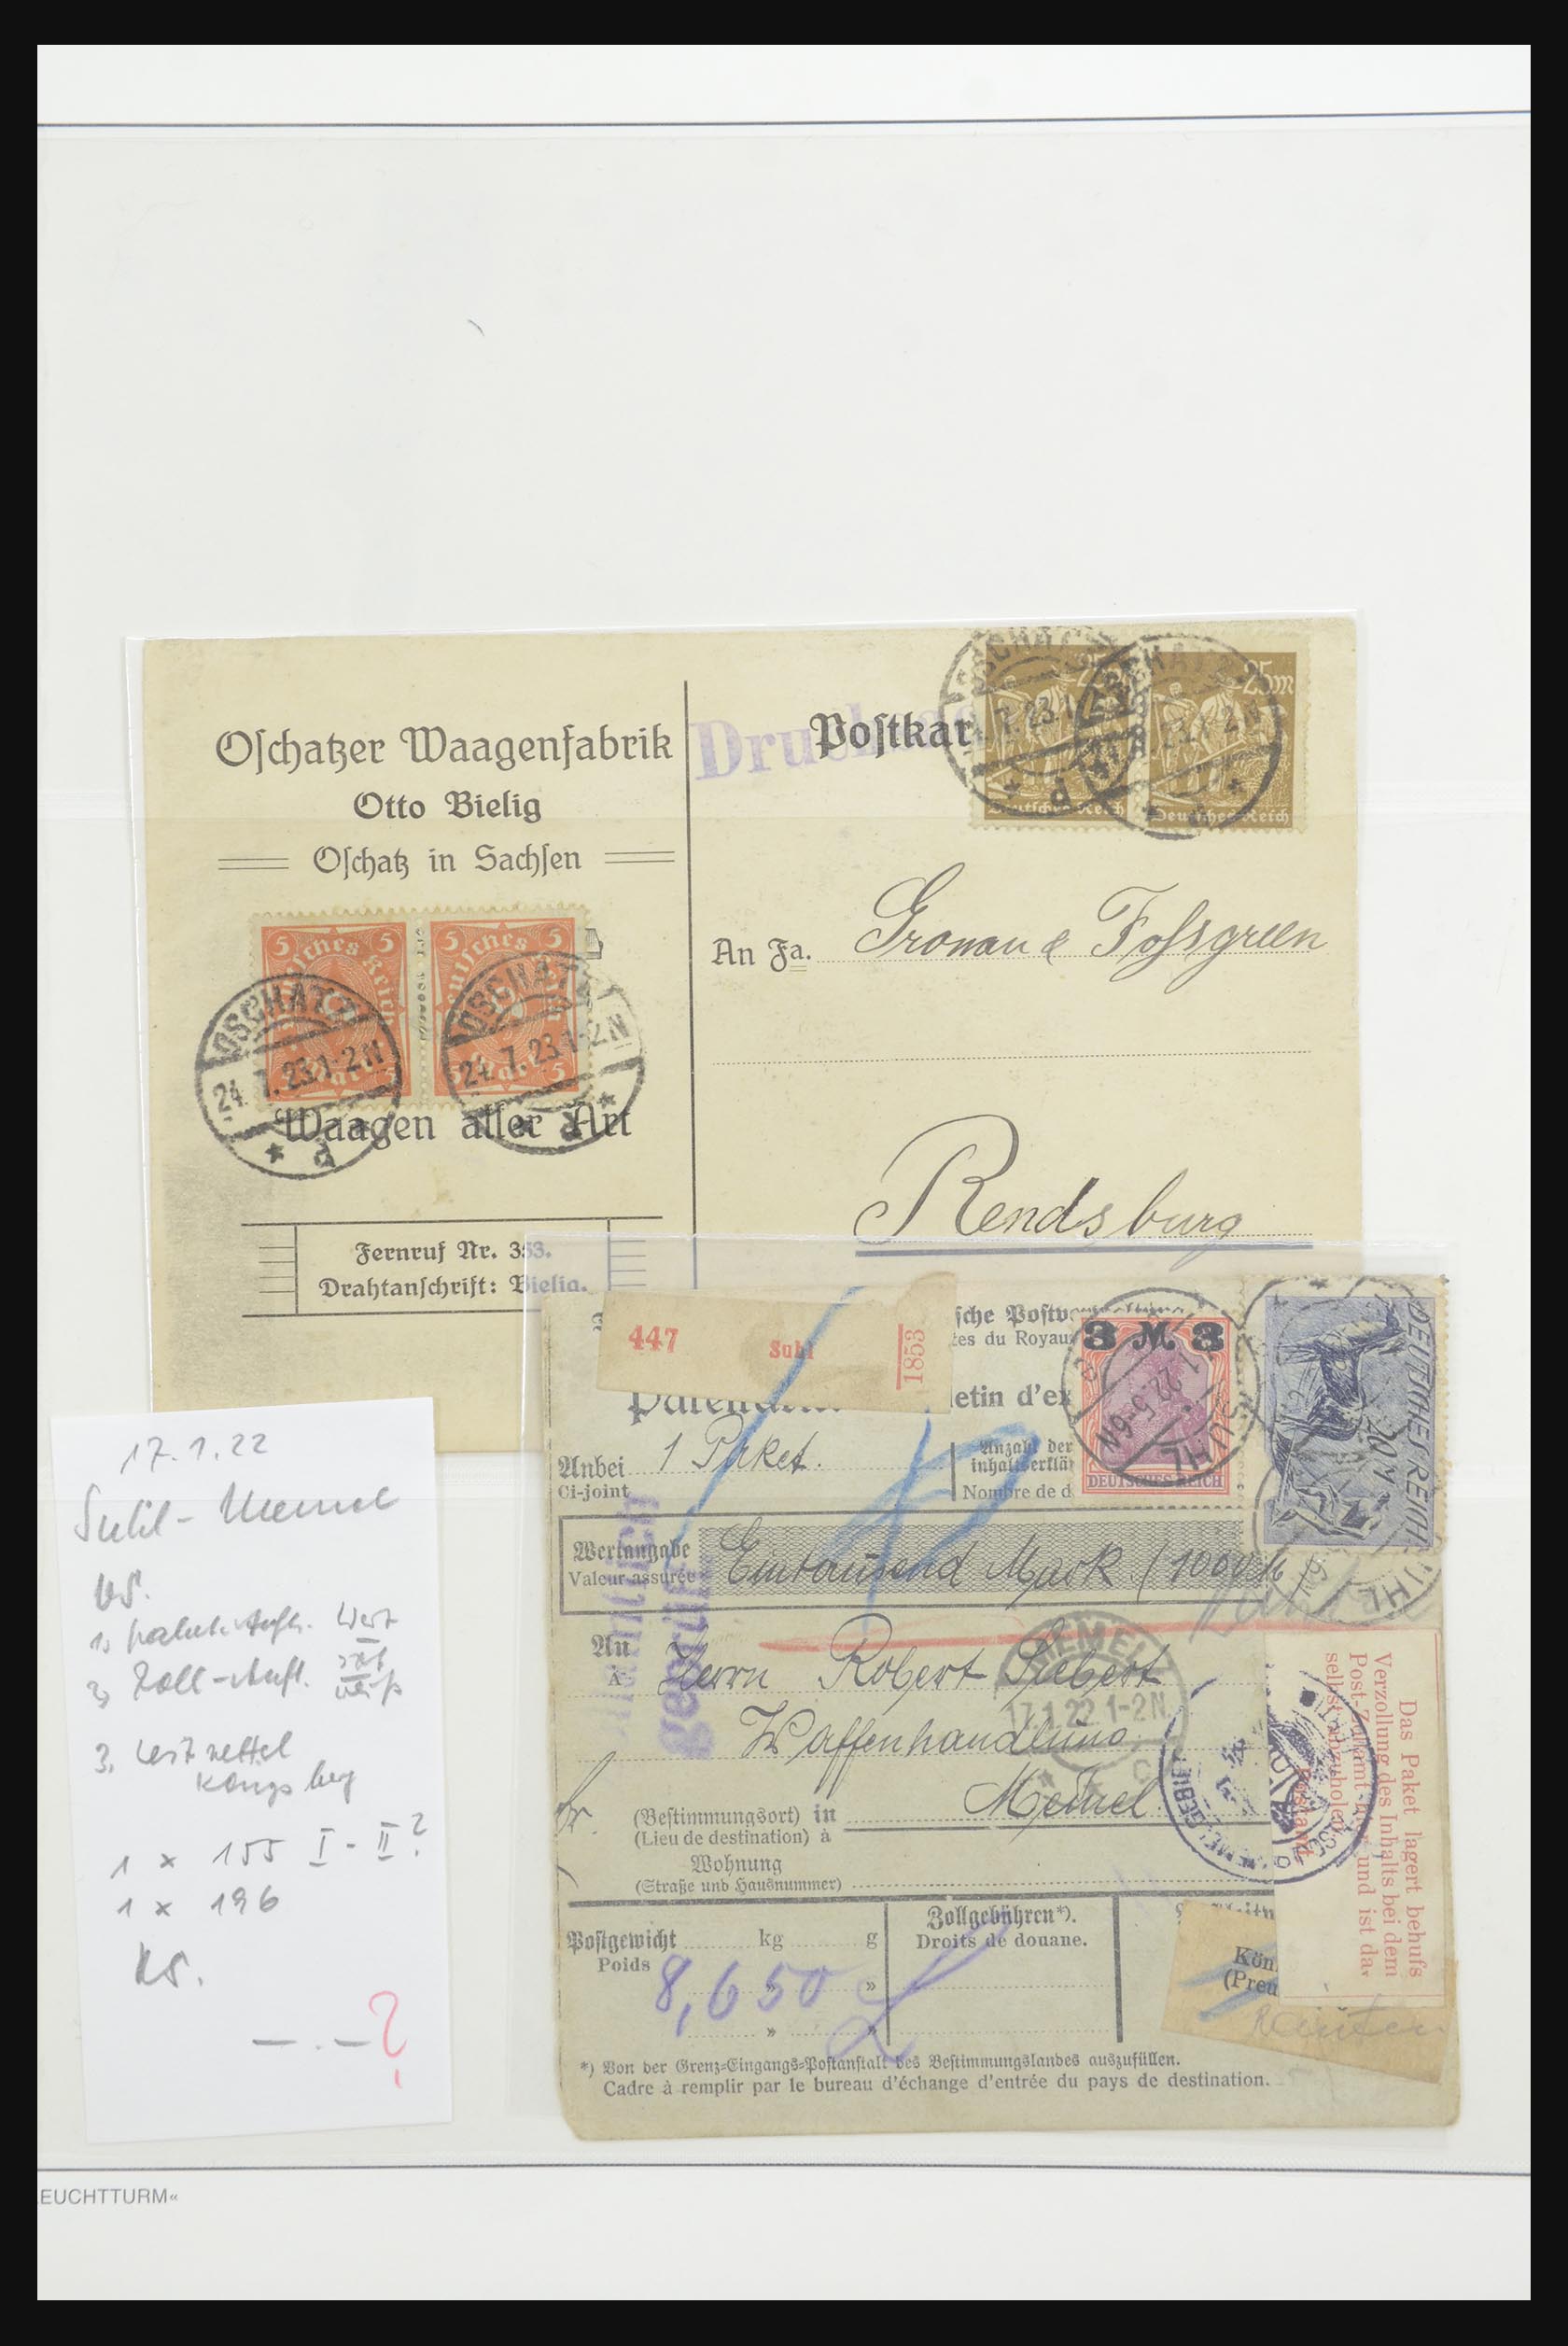 Oschatzer Waagenfabrik
Otto Bielig
Oschatz in Sachsen
5 5
5 5
OSCHATZ
24. 7. 23.1-2N
OSCHATZ
24. 7. 23.1-2N
Waagen aller Art
Fernruf Nr. 353.
Drahtanschrift: Bielig.
Dru
Postkar
25m
25m
Deutsches Reich
Deutsches Reich
An Fa. Gronau & Fossgreen
Rendsburg
447 Suhl 1853
sche Postverwaltung
tes du Royau
letin d'ex
3 M 3
DEUTSCHES REICH
SUHL
DEUTSCHES REICH
20 M
Anbei 1 Paket.
Ci-joint
Anzahl der
inhaltserklär
Nombre de d
Wertangabe Eintausend Mark (1000 M
Valeur assurée
An Herrn Robert Siebert
À
Waffenhandlung
MEMEL
17.1.22.1-2N
(Bestimmungsort) in Memel
(Lieu de destination) à
Wohnung
(Straße und Hausnummer)
Das Paket lagert behufs
Verzollung des Inhalts bei dem
Post-Zollamt hier und ist da
selbst abzuholen
Postamt
Postgewicht kg g
Poids
8,650
» »
» »
Zollgebühren*).
Droits de douane.
Kön
(Preu
*) Von der Grenz-Eingangs-Postanstalt des Bestimmungslandes auszufüllen.
Cadre à remplir par le bureau d'échange d'entrée du pays de destination.
17.1.22
Suhl - Memel
VS.
1. Wert
2. Zoll-Aufl. rot
weiß
3. Leitzettel
Königsberg
1 x 155 I - II?
1 x 196
RS.
— . — ?
EUCHTTURM«